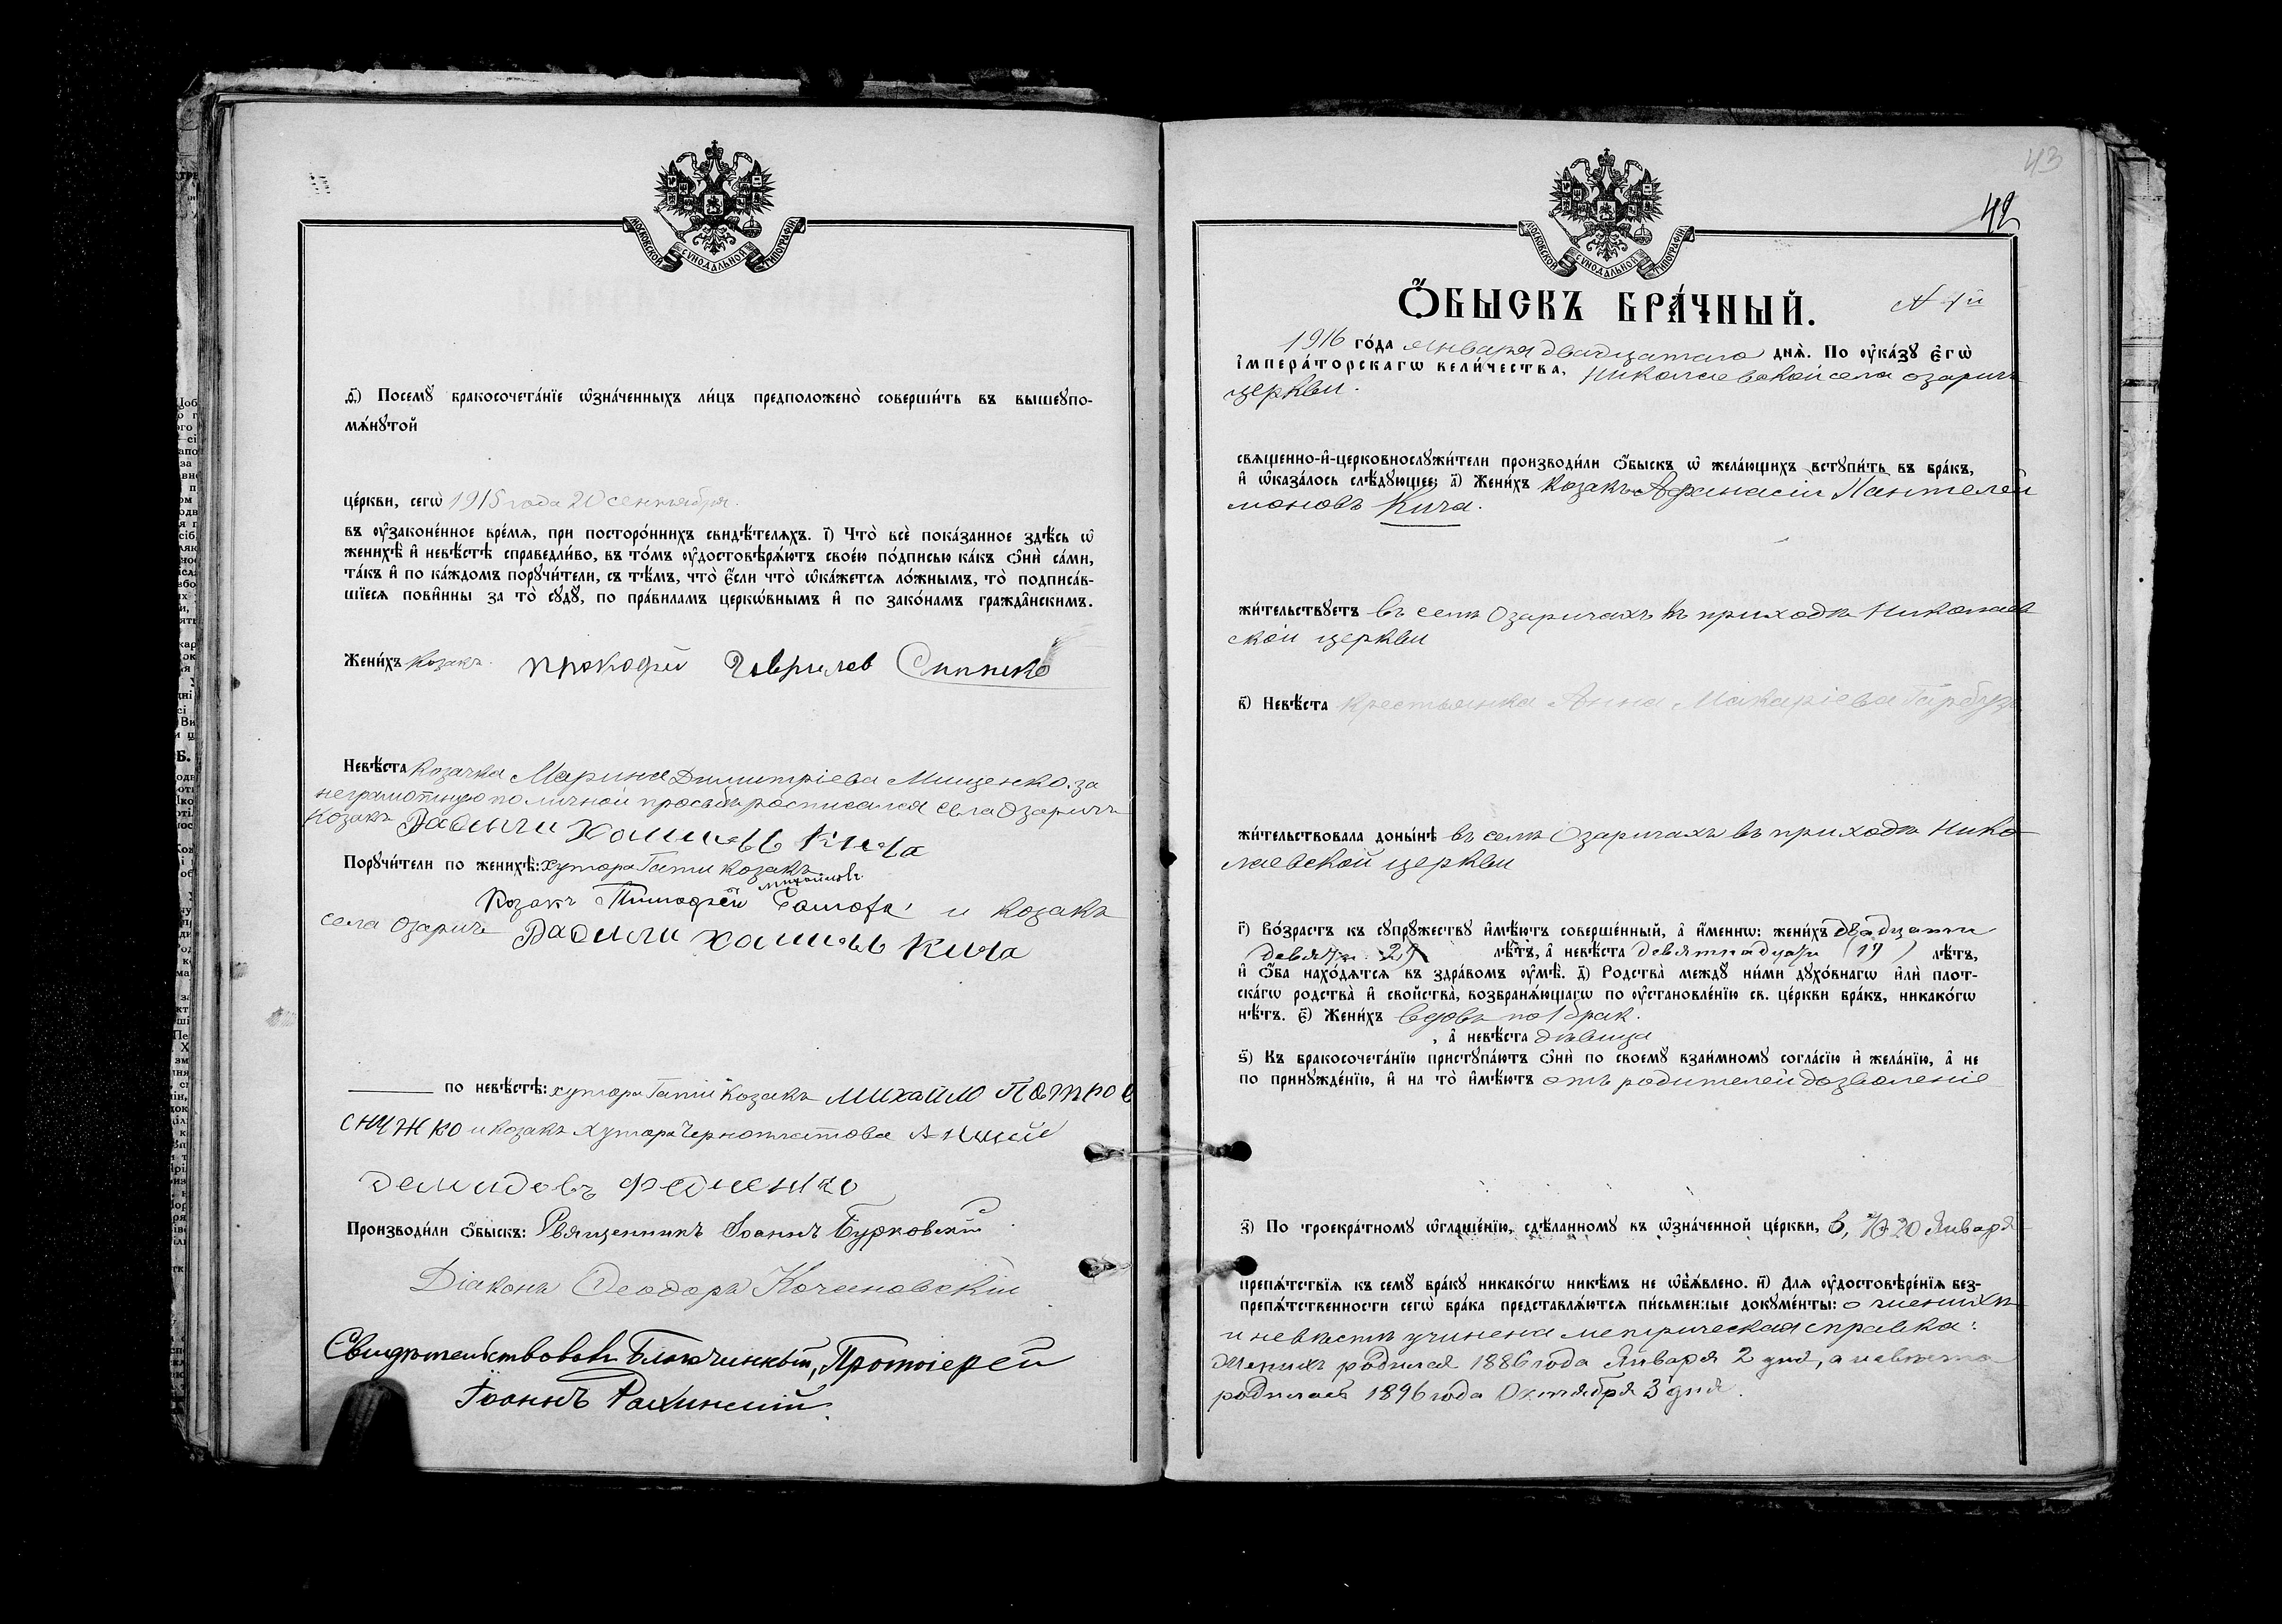 МОСКОВСКОЙ СУНОДАЛЬНОЙ ТИПОГРАФІИ
ѳ҃) Посемꙋ̀ бракосочета́нїе ѡ҆зна́ченныхъ ли́цъ предположено̀ соверши́ть въ вышеꙋпо-
мѧ́нꙋтой
це́ркви, сегѡ̀ 1915 года 20 сентября.
въ ᲂу҆законе́нное вре́мѧ, при посторо́ннихъ свидѣ́телѧхъ. і҃) Что̀ всѐ пока́занное здѣ́сь ѡ҆
женихѣ̀ и҆ невѣ́стѣ справедли́во, въ то́мъ ᲂу҆достовѣрѧ́ютъ свое́ю по́дписью ка́къ ѻ҆нѝ са́ми,
та́къ и҆ по ка́ждомъ порꙋчи́тели, съ тѣ́мъ, что̀ є҆́сли что̀ ѡ҆ка́жетсѧ ло́жнымъ, то̀ подписа́в-
шїесѧ пови́нны за то̀ сꙋдꙋ̀, по пра́виламъ церкѡ́внымъ и҆ по зако́намъ гражда̑нскимъ.
Жени́хъ Козакъ Прокофій Гаврилов
Невѣ́ста Козачка Марина Димитріева Мищенко. за
неграмотную по личной просьбѣ росписался села Озаричъ
Козакъ Кича
Порꙋчи́тели по женихѣ̀: хутора Гати козакъ
Михайловъ
Козакъ Тимофей и козакъ
села Озаричъ Кича
по невѣ́стѣ: хутора Гати Козакъ Михайло Петров
Снижко и козакъ хутора
Демидовъ
Производи́ли ѻ҆́быскъ: Священникъ Іоаннъ Бурковскій
Діаконъ Ѳеодоръ Кочановскій
Свидѣтельствовалъ Благочинный, Протоіерей
Іоаннъ
43
42
МОСКОВСКОЙ СУНОДАЛЬНОЙ ТИПОГРАФІИ
Ѻ҆́БЫСКЪ БРА́ЧНЫЙ. № 1й
1916 го́да января двадцатаго днѧ̀. По ᲂу҆ка́зꙋ є҆гѡ̀
і҆мпера́торскагѡ вели́чества, Николаевской села Озаричъ
церкви.
свѧщенно-и҆-церковнослꙋжи́тели производи́ли ѻ҆́быскъ ѡ҆ жела́ющихъ встꙋпи́ть въ бра́къ,
и҆ ѡ҆каза́лось слѣ́дꙋющее: а҃) Жени́хъ козакъ Афанасій Пантелей
моновъ Кича.
жи́тельствꙋетъ въ селѣ Озаричахъ въ приходѣ Николаев
ской церкви
в҃) Невѣ́ста крестьянка Анна Макаріева Гарбуз
жи́тельствовала доны́нѣ въ селѣ Озаричахъ въ приходѣ Нико
лаевской церкви
г҃) Во́зрастъ къ сꙋпрꙋ́жествꙋ и҆мѣ́ютъ соверше́нный, а҆ и҆́менно: жени́хъ двадцати
девяти 29 лѣ́тъ, а҆ невѣ́ста девятнадцати (19) лѣ́тъ,
и҆ ѻ҆́ба нахо́дѧтсѧ въ здра́вомъ ᲂу҆мѣ̀. д҃) Родства̀ междꙋ ни́ми дꙋхо́внагѡ и҆лѝ плот-
ска́гѡ родства̀ и҆ свойства̀, возбранѧ́ющагѡ по ᲂу҆становле́нїю св. це́ркви бра́къ, никако́гѡ
нѣ́тъ. є҃) Жени́хъ вдовъ по 1 брак.
, а҆ невѣ́ста дѣвица
ѕ҃) Къ бракосочета́нїю пристꙋпа́ютъ ѻ҆нѝ по своемꙋ̀ взаи́мномꙋ согла́сїю и҆ жела́нїю, а҆ не
по принꙋжде́нїю, и҆ на то̀ и҆мѣ́ютъ отъ родителей дозволеніе
з҃) По троекра́тномꙋ ѡ҆глаше́нїю, сдѣ́ланномꙋ въ ѡ҆зна́ченной це́ркви, 6, 10 20 Января
препѧ́тствїѧ къ семꙋ̀ бра́кꙋ никако́гѡ никѣ́мъ не ѡ҆б̾ѧ́влено. и҃) Длѧ ᲂу҆достовѣре́нїѧ без-
препѧ́тственности сегѡ̀ бра́ка представлѧ́ютсѧ пи́сьменные докꙋме́нты: о женихѣ
и невѣстѣ учинена метрическая справка:
Женихъ родился 1886 года Января 2 дня, а невѣста
родилась 1896 года Октября 3 дня.